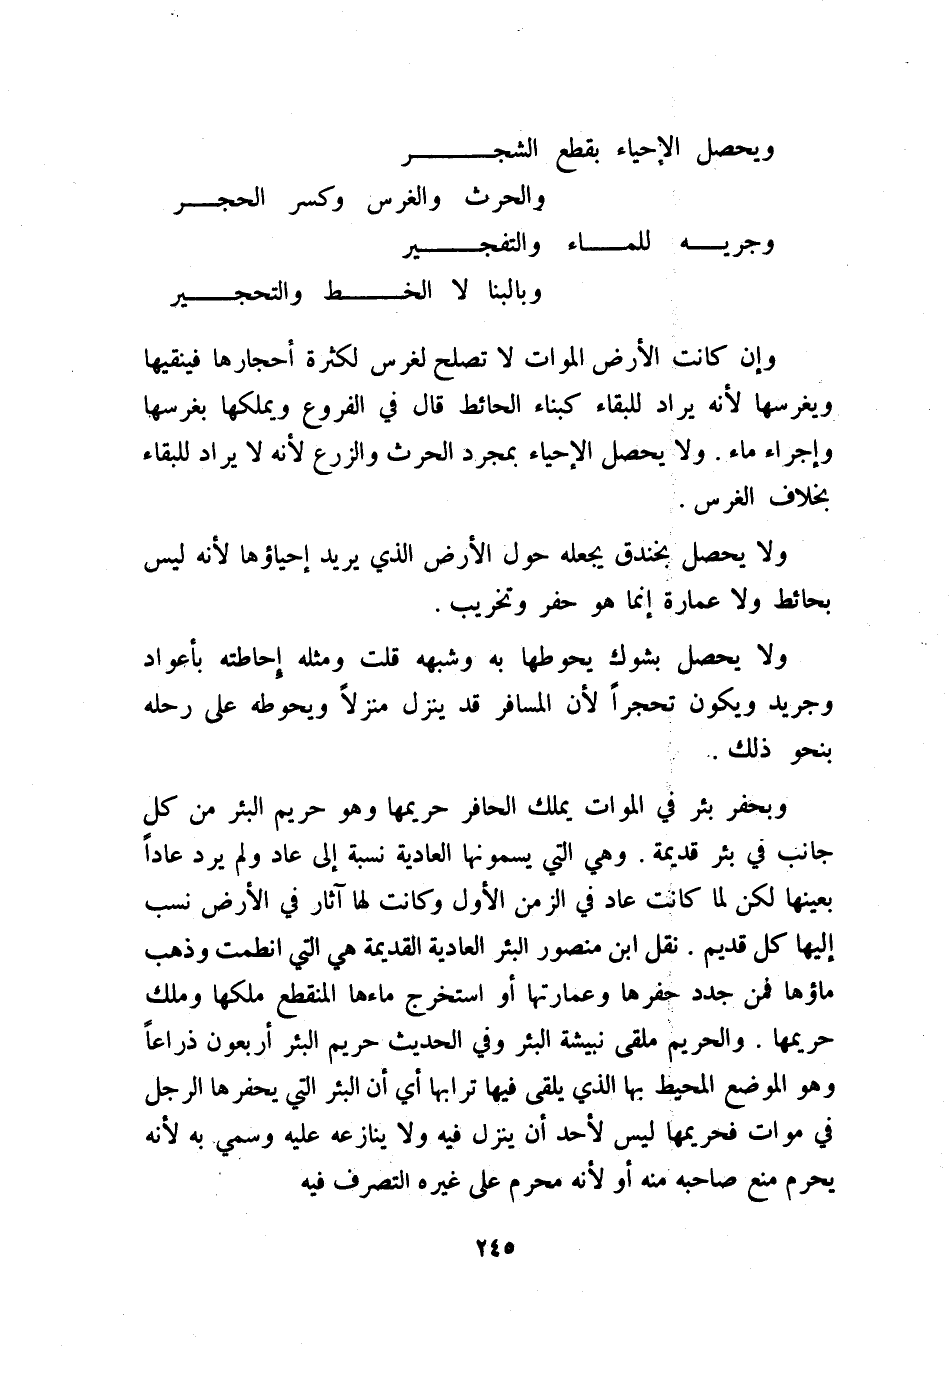 ويحصل الإحياء بقطع الشجـــــــر
والحرث والغرس وكسر الحجـــر
وجريـــه للمـــاء والتفجـــــير
وبالبنا لا الخــــط والتحجـــــير
وإن كانت الأرض الموات لا تصلح لغرس لكثرة أحجارها فينقيها
ويغرسها لأنه يراد للبقاء كبناء الحائط قال في الفروع ويملكها بغرسها
وإجراء ماء . ولا يحصل الإحياء بمجرد الحرث والزرع لأنه لا يراد للبقاء
بخلاف الغرس .
ولا يحصل بخندق يجعله حول الأرض الذي يريد إحياؤها لأنه ليس
بحائط ولا عمارة إنما هو حفر وتخريب .
ولا يحصل بشوك يحوطها به وشبهه قلت ومثله إحاطته بأعواد
وجريد ويكون تحجراً لأن المسافر قد ينزل منزلاً ويحوطه على رحله
بنحو ذلك .
وبحفر بئر في الموات يملك الحافر حريمها وهو حريم البئر من كل
جانب في بئر قديمة . وهي التي يسمونها العادية نسبة إلى عاد ولم يرد عاداً
بعينها لكن لما كانت عاد في الزمن الأول وكانت لها آثار في الأرض نسب
إليها كل قديم . نقل ابن منصور البئر العادية القديمة هي التي انطمت وذهب
ماؤها فمن جدد حفرها وعمارتها أو استخرج ماءها المنقطع ملكها وملك
حريمها . والحريم ملقى نبيشة البئر وفي الحديث حريم البئر أربعون ذراعاً
وهو الموضع المحيط بها الذي يلقى فيها ترابها أي أن البئر التي يحفرها الرجل
في موات فحريمها ليس لأحد أن ينزل فيه ولا ينازعه عليه وسمي به لأنه
يحرم منع صاحبه منه أو لأنه محرم على غيره التصرف فيه
٢٤٥